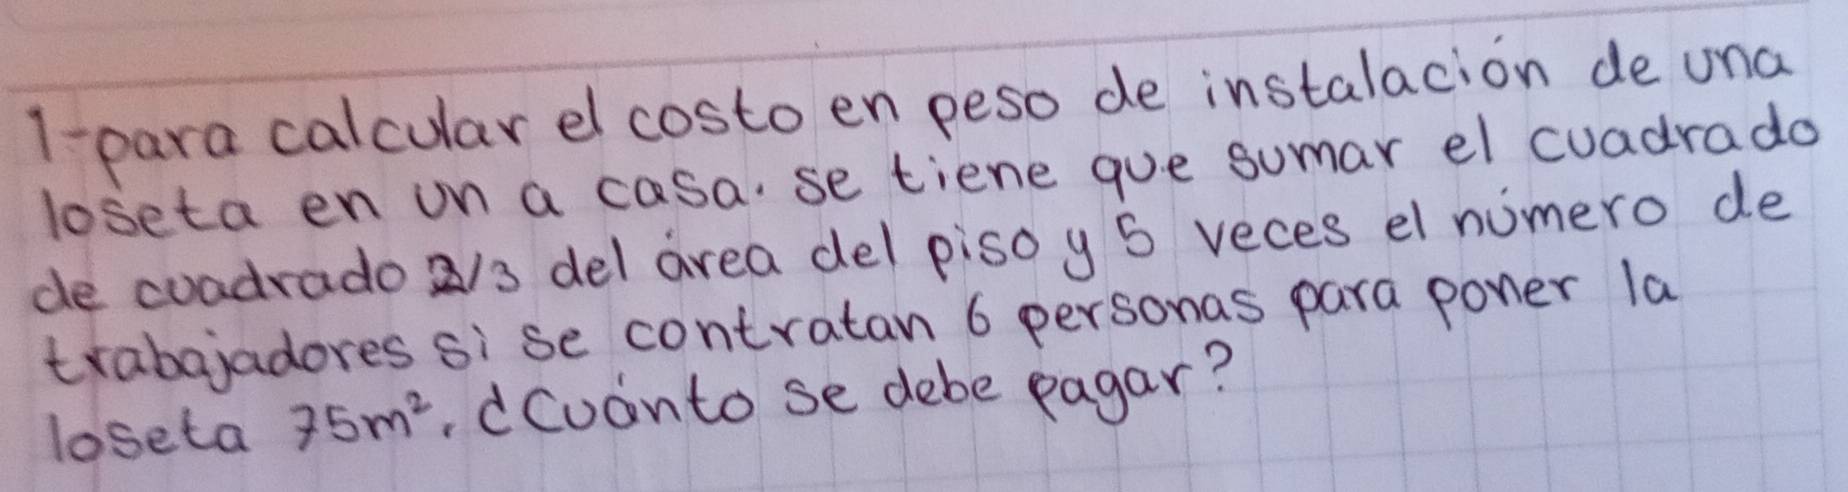 1-para calcular el costo en peso de instalación de una
loseta en un a casa. se tiene que sumar el cuadrado
de cuadrado 2/3 del área del piso y 5 veces el número de
trabajadores si se contratan 6 personas para poner la
loseta 75m². ¿Cuánto se debe pagar?